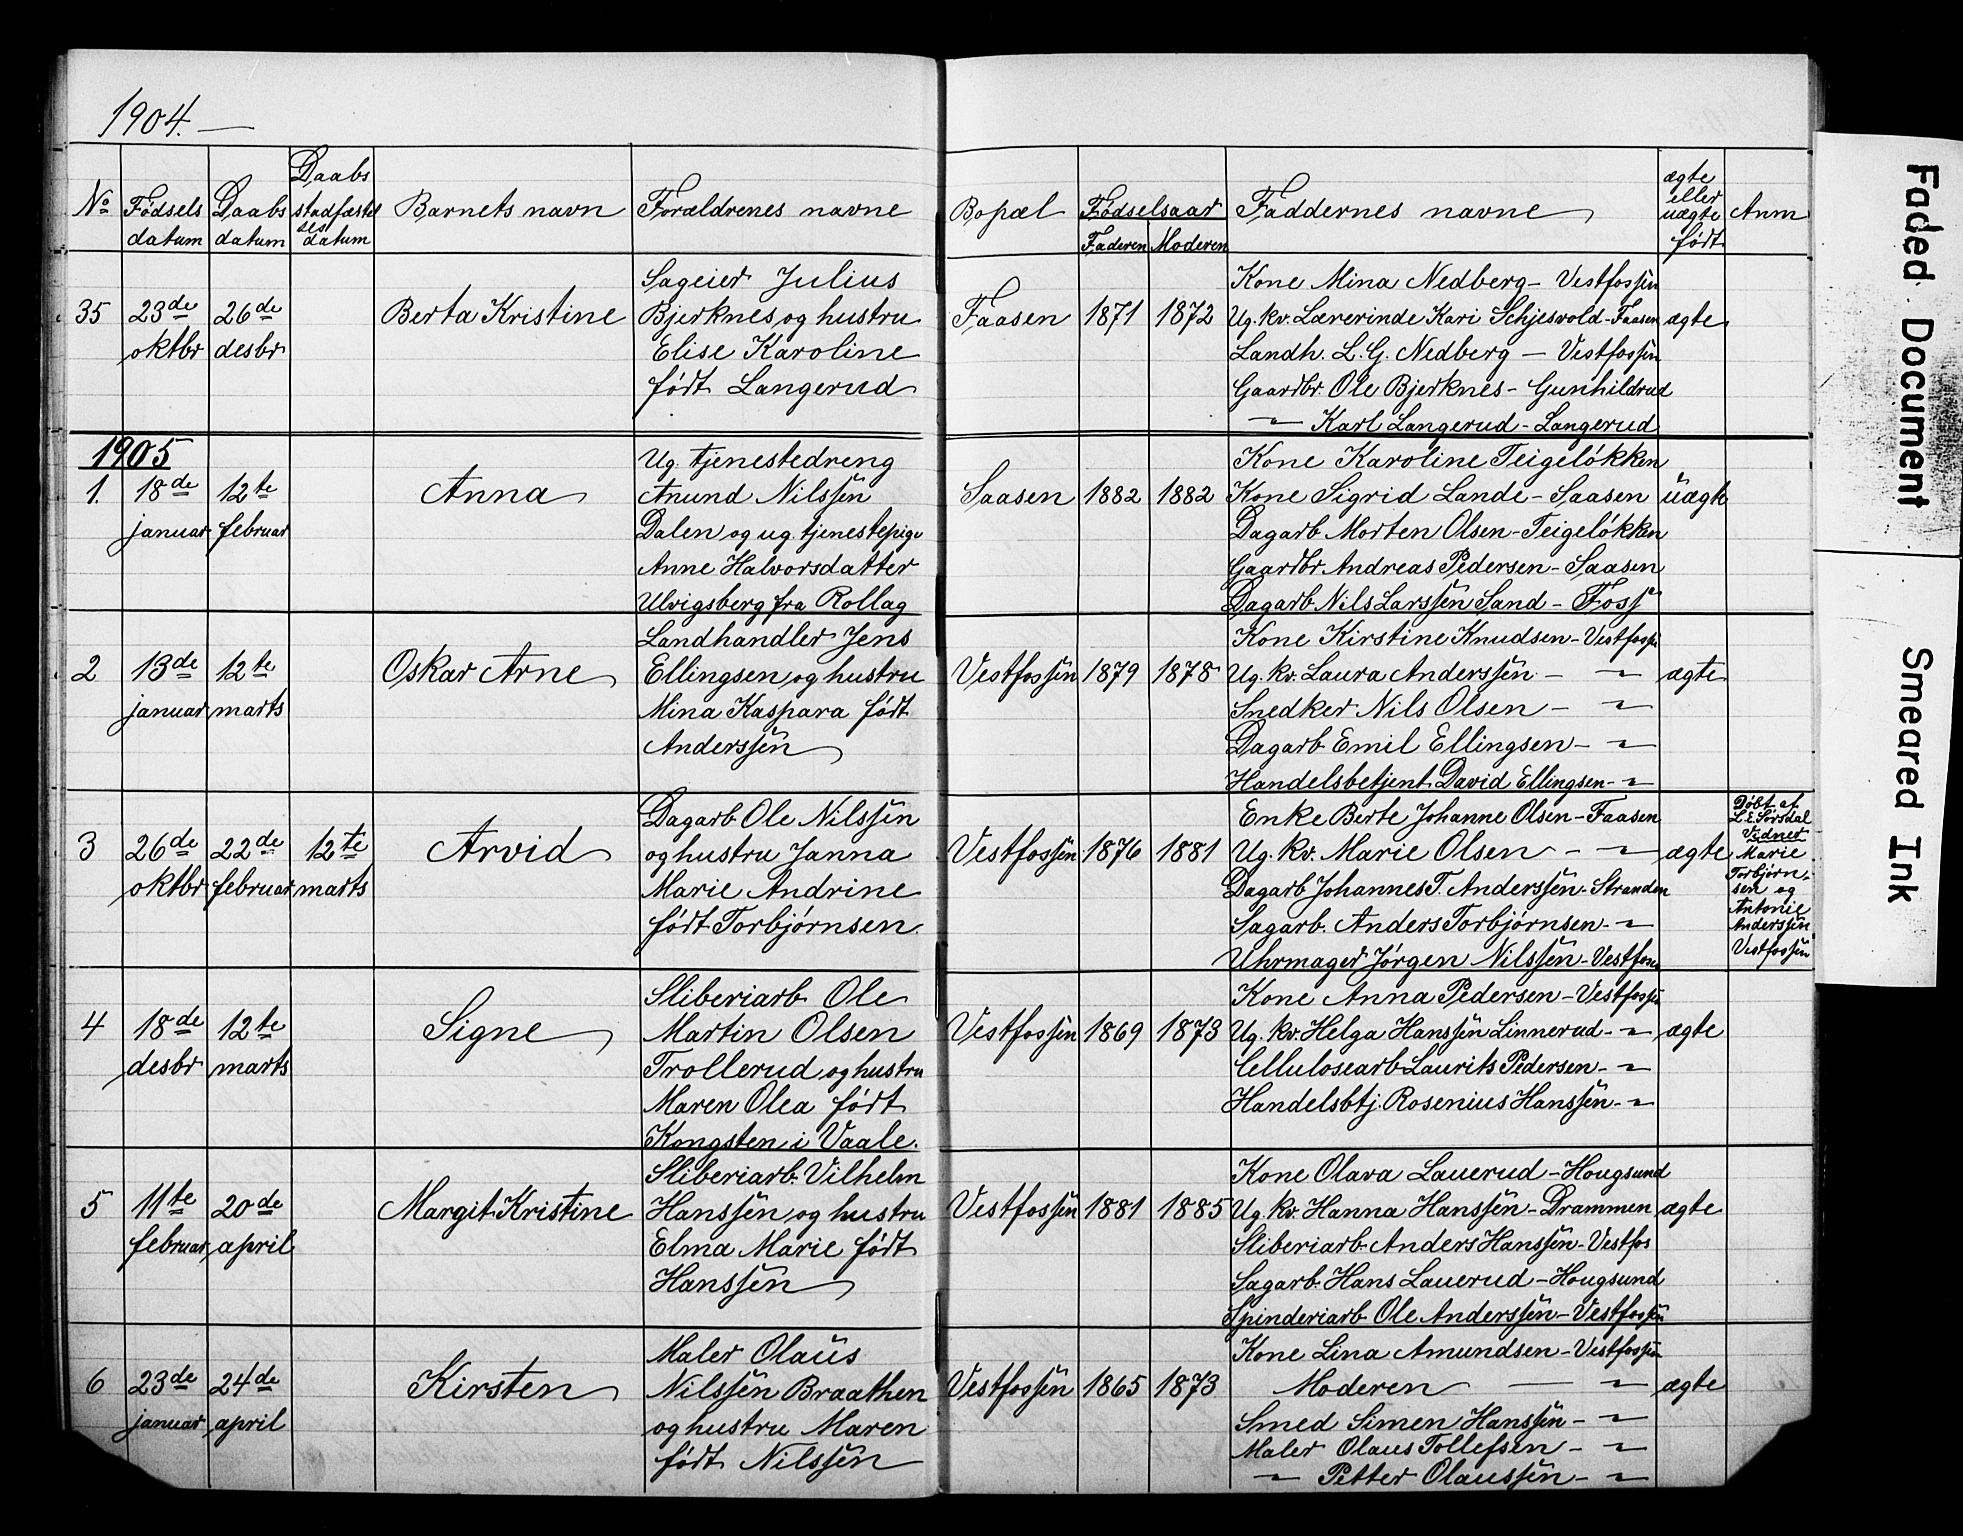 1904.
No
Fødsels datum
Daabs datum
Daabs stadfæstelses datum
Barnets navn
Forældrenes navne
Bopæl
Fødselsaar
Faderen
Moderen
Faddernes navne
ægte eller uægte født
Anm
35
23de oktbr
26de desbr
Berta Kristine
Sageier Julius
Bjerknes og hustru
Elise Karoline
født Langerud
Faasen
1871
1872
Kone Mina Nedberg - Vestfossen
Ug. kv. Lærerinde Kari Schjesvold - Faasen
Landh. L. G. Nedberg - Vestfossen
Gaardbr. Ole Bjerknes - Gunhildrud
-"- Karl Langerud - Langerud
ægte
1905
1.
18de januar
12te februar
Anna
Ug. tjenestedreng
Anund Nilssen
Dalen og ug. tjenestepige
Anne Halvorsdatter
Ulvigsberg fra Rollag
Saasen
1882
1882
Kone Karoline Teigeløkken
Kone Sigrid Lande - Saasen
Dagarb Morten Olsen - Teigeløkken
Gaardbr Andreas Pedersen - Saasen
Dagarb Nils Larssen Sand - Foss
uægte
2
13de januar
12te marts
Oskar Arne
Landhandler Jens
Ellingsen og hustru
Mina Kaspara født
Anderssen
Vestfossen
1879
1878
Kone Kirstine Knudsen - Vestfossen
Ug. kv. Laura Anderssen - -"-
Snedker Nils Olsen - -"-
Dagarb Emil Ellingsen - -"-
Handelsbetjent David Ellingsen - -"-
ægte
3
26de oktbr
22de februar
12te marts
Arvid
Dagarb Ole Nilssen
og hustru Janna
Marie Andrine
født Torbjørnsen
Vestfossen
1876
1881
Enke Berte Johanne Olsen - Faasen
Ug. kv. Marie Olsen - -"-
Dagarb Johannes T. Anderssen - Stranden
Sagarb. Anders Torbjørnsen - -"-
Uhrmager Jørgen Nilssen - Vestfossen
ægte
Døbt af
L. E. Sørsdal
Vidner
Marie
Torbjørn-
sen og
Antonie
Anderssen
Vestfossen
4
18de desbr
12te marts
Signe
Sliberiarb Ole
Martin Olsen
Trollerud og hustru
Maren Olea født
Kongsten i Vaale.
Vestfossen
1869
1873
Kone Anna Pedersen - Vestfossen
Ug. kv. Helga Hanssen Linnerud - -"-
Cellulosearb Laurits Pedersen - -"-
Handelsbtj. Rosenius Hanssen - -"-
ægte
5
11te februar
20de april
Margit Kristine
Sliberiarb. Vilhelm
Hanssen og hustru
Elma Marie født
Hanssen
Vestfossen
1881
1885
Kone Olava Lauerud - Hougsund
Ug. kv. Hanna Hanssen - Drammen
Sliberiarb. Anders Hanssen - Vestfos
Sagarb. Hans Lauerud - Hougsund
Spinderiarb Ole Anderssen - Vestfossen
ægte
6
23de januar
24de april
Kirsten
Maler Olaus
Nilssen Braathen
og hustru Maren
født Nilssen
Vestfossen
1865
1873
Kone Lina Amundsen - Vestfossen
Moderen - -"-
Smed Simen Hanssen - -"-
Maler Olaus Tollefsen - -"-
-"- Petter Olaussen - -"-
ægte
Faded Document
Smeared Ink